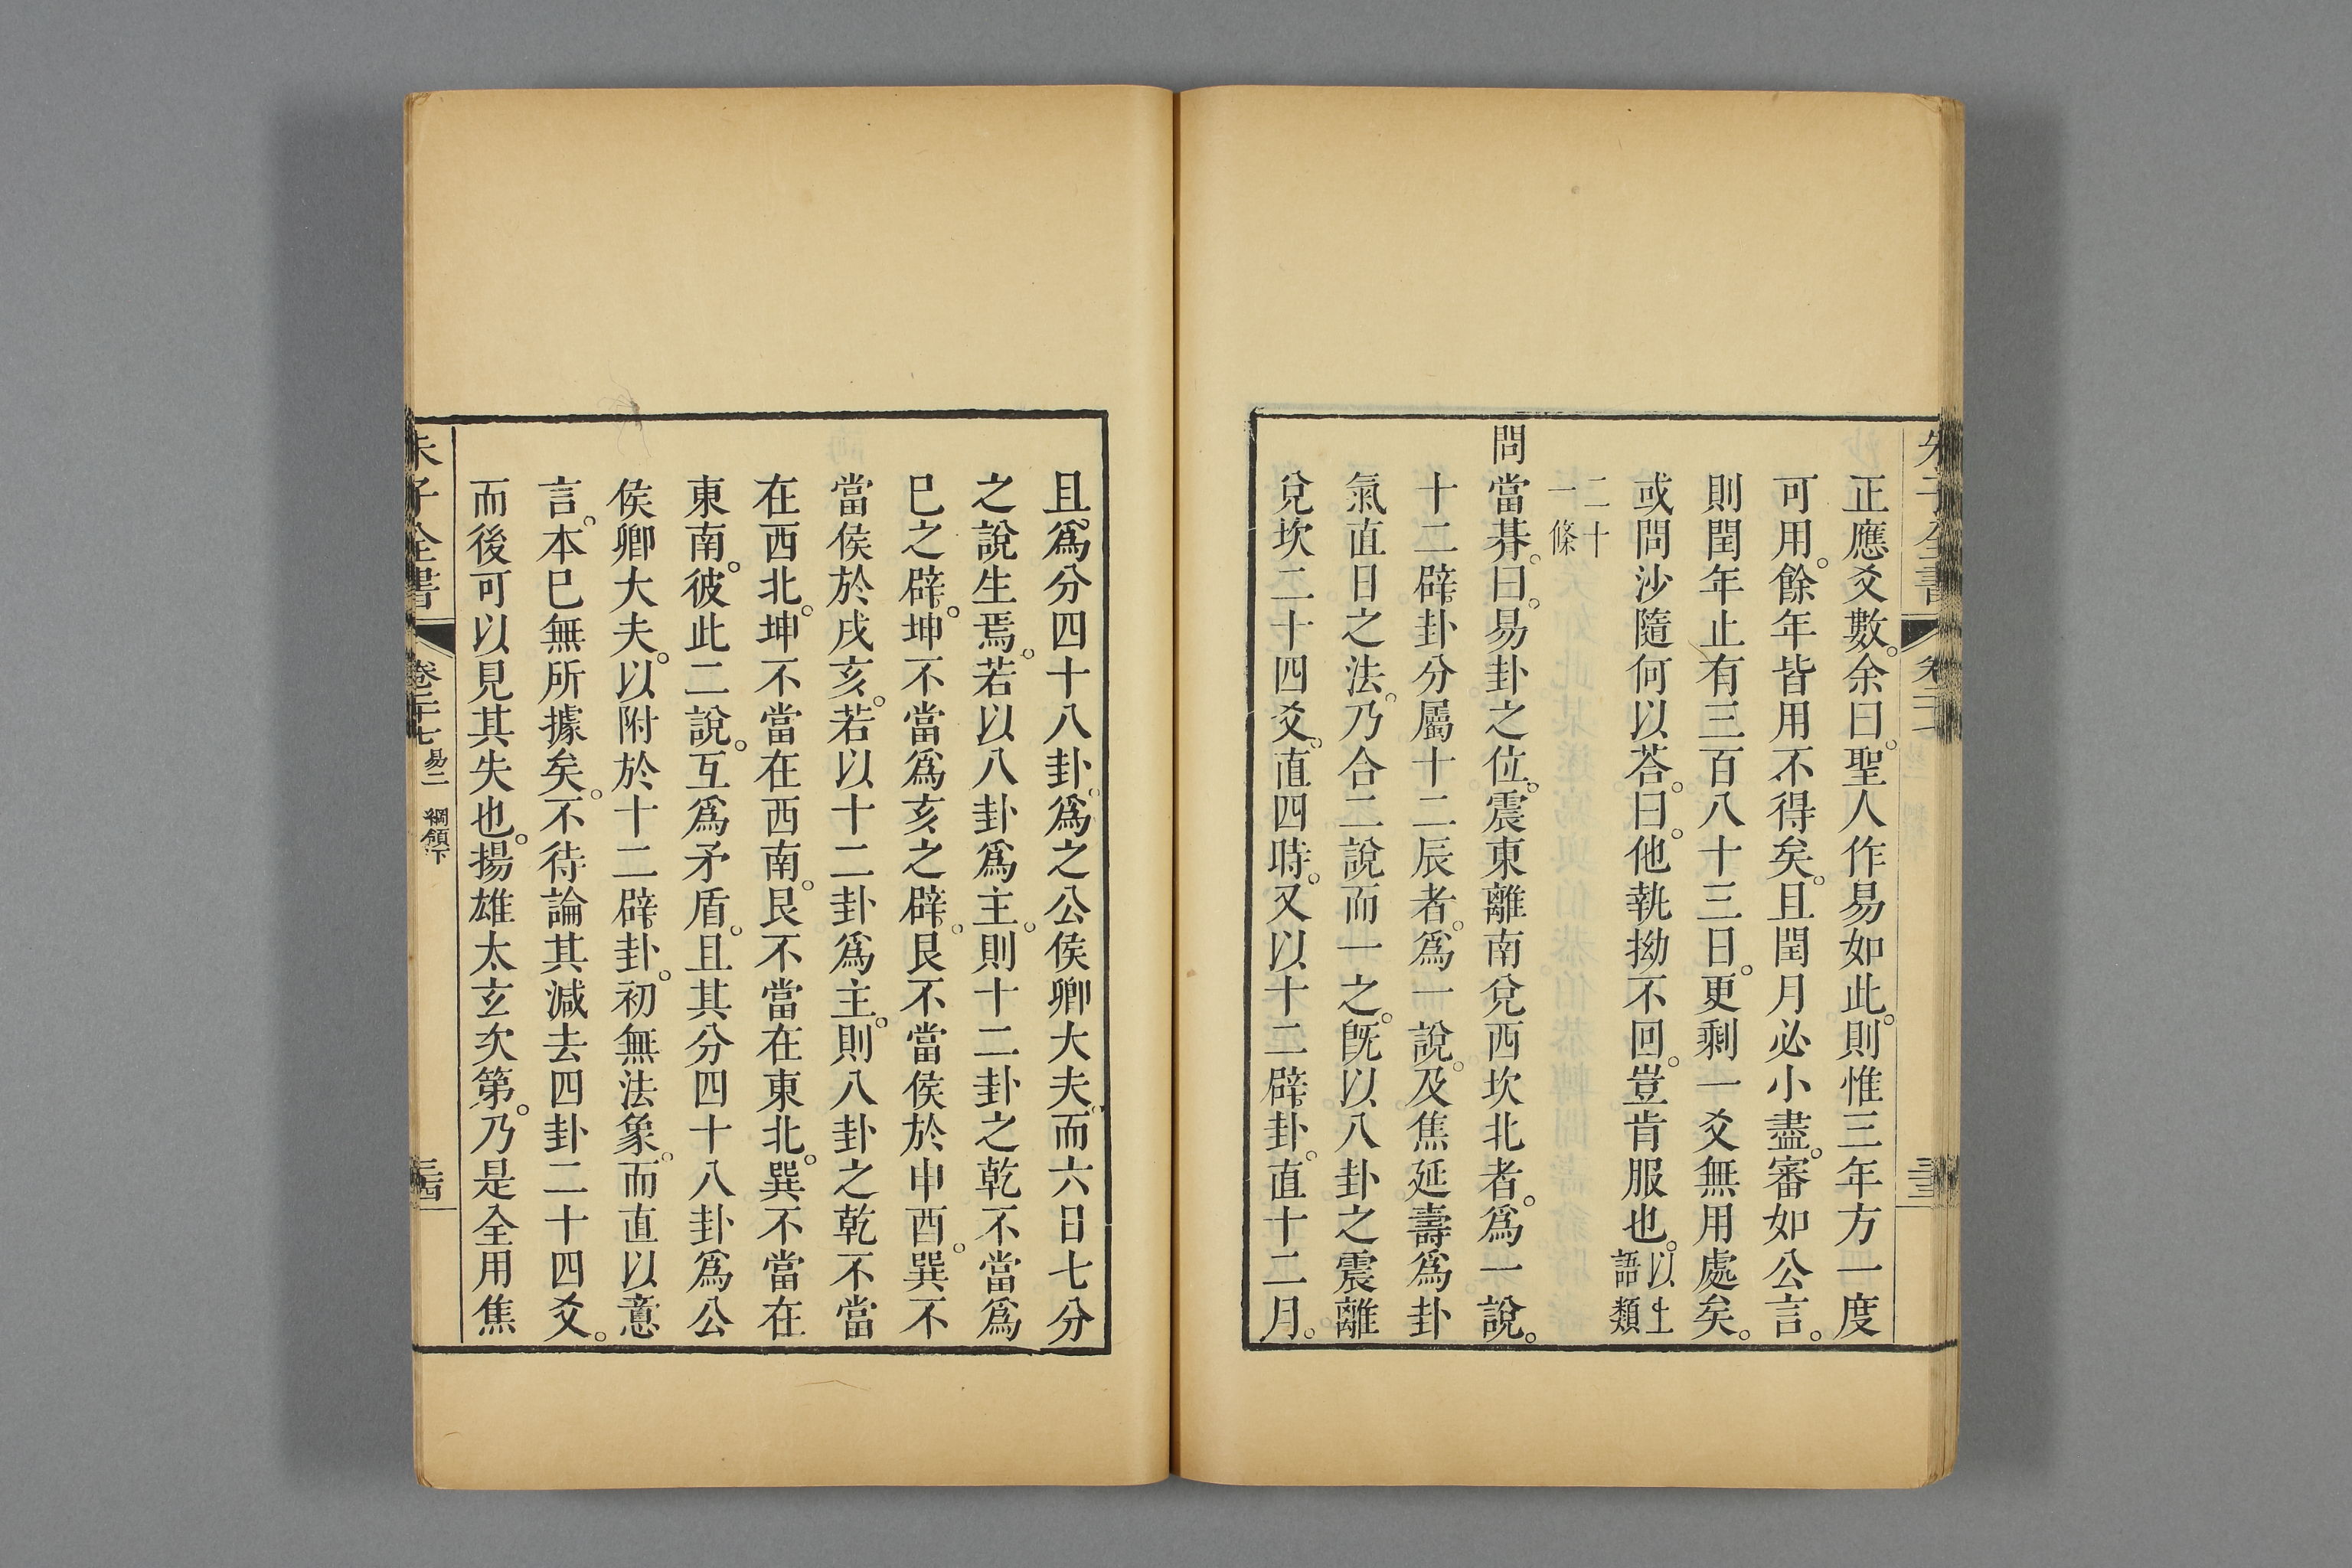 正應爻數。余曰。聖人作易如此。則惟三年方一度
可用。餘年皆用不得矣。且閏月必小盡。審如公言。
則閏年止有三百八十三日。更剩一爻無用處矣。
或問沙隨何以荅。曰。他執拗不回。豈肯服也。以上語類
二十一條
問當朞。曰。易卦之位。震東離南兌西坎北者。爲一說。
十二辟卦分屬十二辰者。爲一說。及焦延壽爲卦
氣直日之法。乃合二說而一之。旣以八卦之震離
兌坎二十四爻。直四時。又以十二辟卦。直十二月。
且爲分四十八卦。爲之公侯卿大夫。而六日七分
之說生焉。若以八卦爲主。則十二卦之乾不當爲
巳之辟。坤不當爲亥之辟。艮不當侯於申酉。巽不
當侯於戌亥。若以十二卦爲主。則八卦之乾不當
在西北。坤不當在西南。艮不當在東北。巽不當在
東南。彼此二說。互爲矛盾。且其分四十八卦爲公
侯卿大夫。以附於十二辟卦。初無法象。而直以意
言。本巳無所據矣。不待論其減去四卦二十四爻。
而後可以見其失也。揚雄太玄次第。乃是全用焦
朱子全書 卷二十七 易二 綱領下